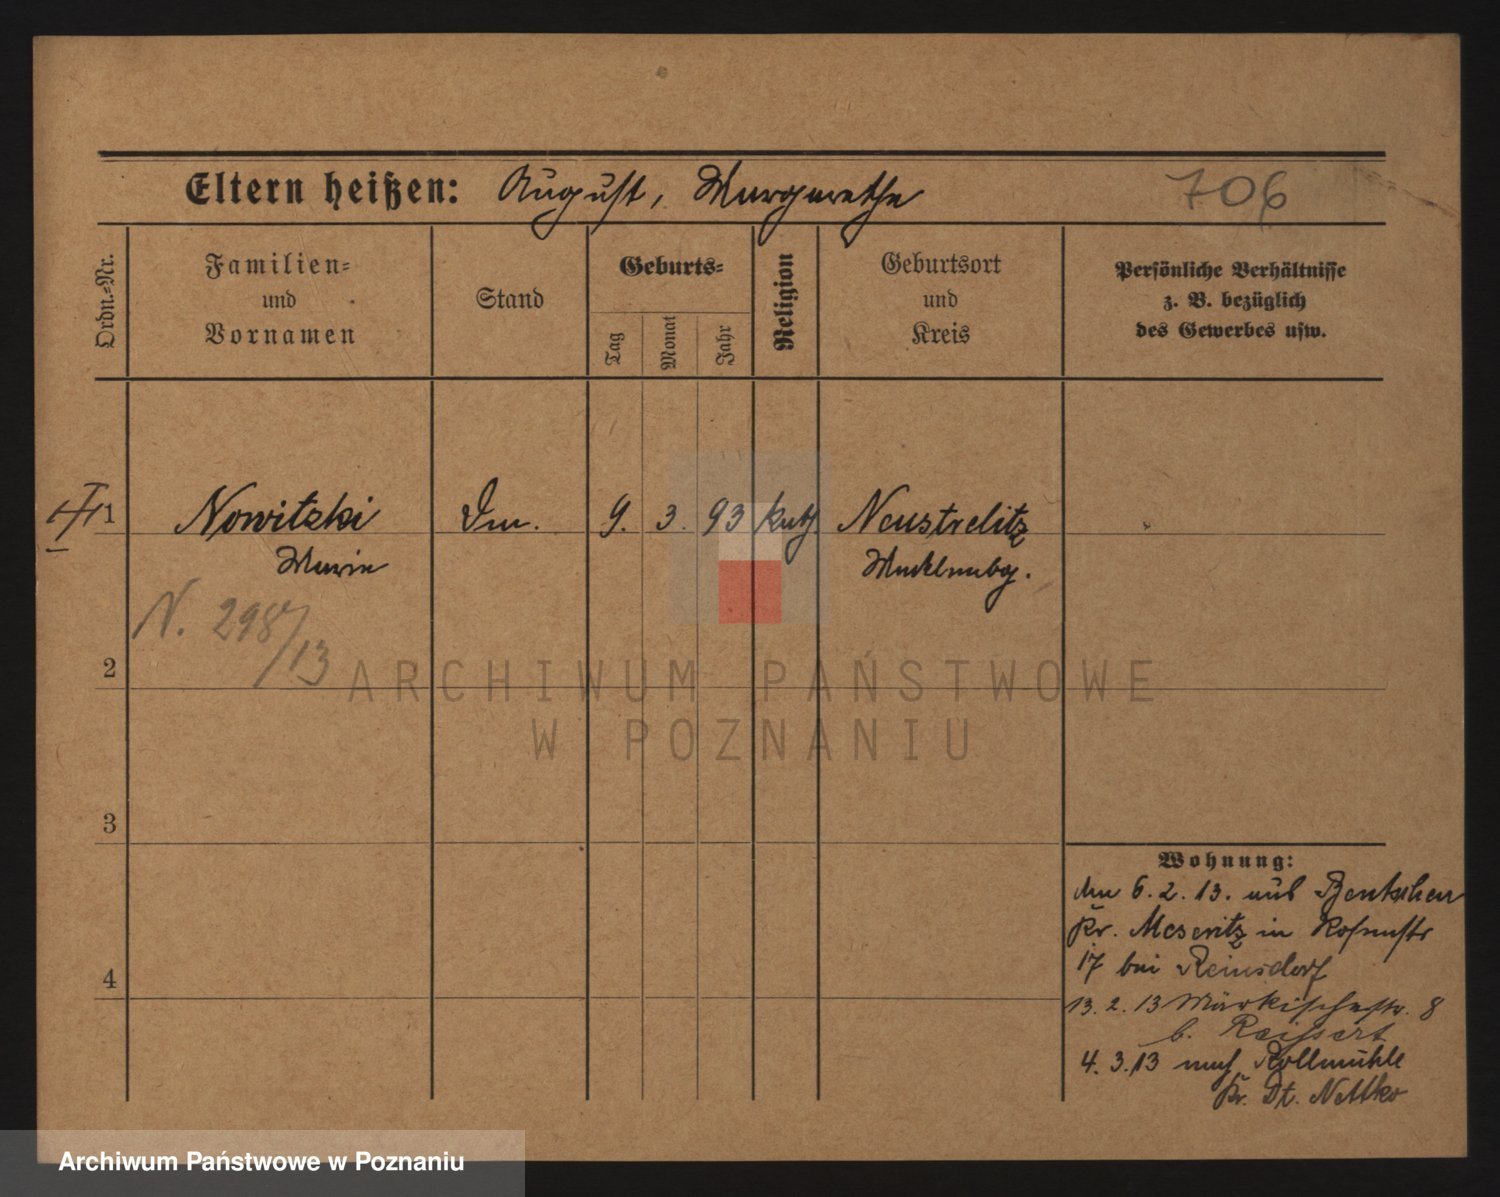 Eltern heißen: August, Margarethe 706
Ordn.=Nr.
Familien=
und
Vornamen
Stand
Geburts=
Tag
Monat
Jahr
Religion
Geburtsort
und
Kreis
Persönliche Verhältnisse
z. B. bezüglich
des Gewerbes usw.
1 Nowitzki 9. 3. 93 kath. Neustrelitz
Marie Mecklenbg.
N. 298/13
2
3
4
ARCHIWUM PAŃSTWOWE
W POZNANIU
Wohnung:
den 6. 2. 13. aus Bentschen
Kr. Meseritz in Rosenstr
17 bei Reinsdorf
13. 2. 13 Märkischestr. 8
b. Reissert
4. 3. 13 nach Rollmühle
Kr. Dt.
Archiwum Państwowe w Poznaniu